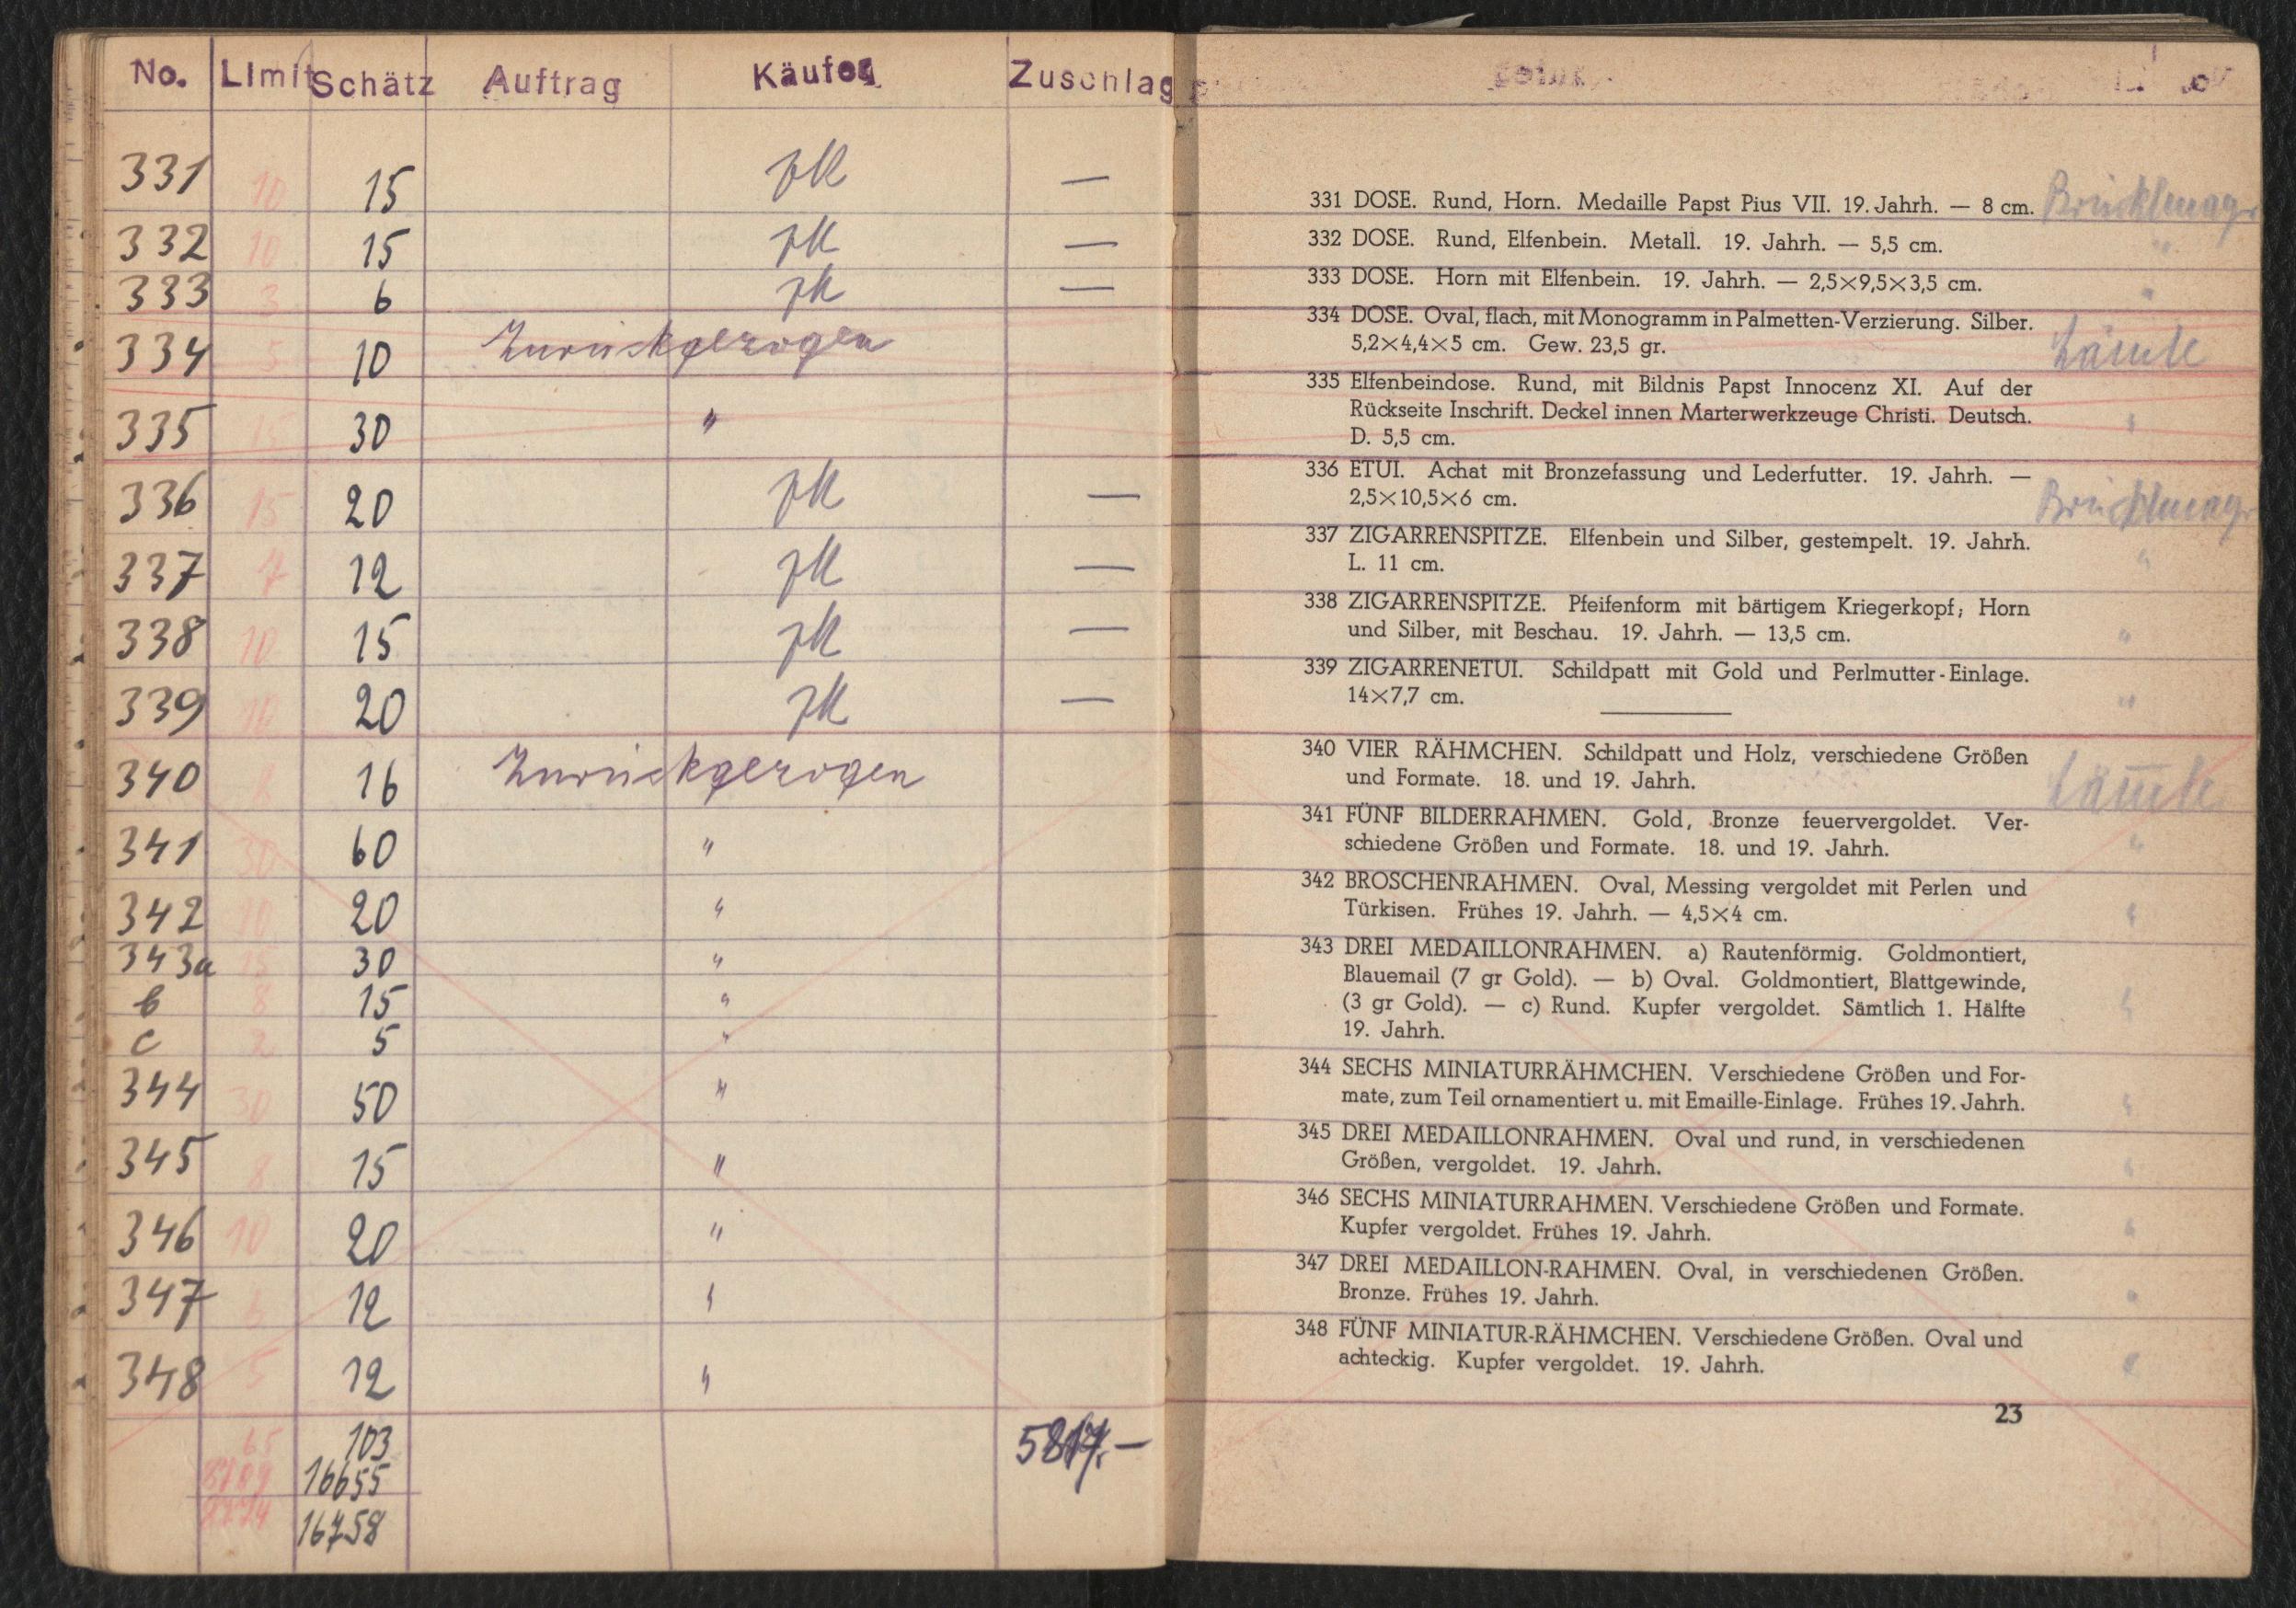 No. Limit Schätz Auftrag Käufer Zuschlag
331 10 15 —
332 10 15 —
333 3 6 —
334 5 10 Zurückgezogen
335 15 30 "
336 15 20 —
337 7 12 —
338 10 15 —
339 10 20 —
340 8 16 Zurückgezogen
341 30 60 "
342 10 20 "
343a 15 30 "
b 8 15 "
c 2 5 "
344 30 50 "
345 8 15 "
346 10 20 "
347 6 12 "
348 5 12 "
65 103
8709 16655
8774 16758
331 DOSE. Rund, Horn. Medaille Papst Pius VII. 19. Jahrh. — 8 cm.
332 DOSE. Rund, Elfenbein. Metall. 19. Jahrh. — 5,5 cm. "
333 DOSE. Horn mit Elfenbein. 19. Jahrh. — 2,5×9,5×3,5 cm. "
334 DOSE. Oval, flach, mit Monogramm in Palmetten-Verzierung. Silber.
5,2×4,4×5 cm. Gew. 23,5 gr. Lämle
335 Elfenbeindose. Rund, mit Bildnis Papst Innocenz XI. Auf der
Rückseite Inschrift. Deckel innen Marterwerkzeuge Christi. Deutsch. "
D. 5,5 cm.
336 ETUI. Achat mit Bronzefassung und Lederfutter. 19. Jahrh. —
2,5×10,5×6 cm.
337 ZIGARRENSPITZE. Elfenbein und Silber, gestempelt. 19. Jahrh.
L. 11 cm. "
338 ZIGARRENSPITZE. Pfeifenform mit bärtigem Kriegerkopf; Horn
und Silber, mit Beschau. 19. Jahrh. — 13,5 cm. "
339 ZIGARRENETUI. Schildpatt mit Gold und Perlmutter-Einlage.
14×7,7 cm. "
340 VIER RÄHMCHEN. Schildpatt und Holz, verschiedene Größen
und Formate. 18. und 19. Jahrh. Lämle
341 FÜNF BILDERRAHMEN. Gold, Bronze feuervergoldet. Ver-
schiedene Größen und Formate. 18. und 19. Jahrh. "
342 BROSCHENRAHMEN. Oval, Messing vergoldet mit Perlen und
Türkisen. Frühes 19. Jahrh. — 4,5×4 cm. "
343 DREI MEDAILLONRAHMEN. a) Rautenförmig. Goldmontiert,
Blauemail (7 gr Gold). — b) Oval. Goldmontiert, Blattgewinde,
(3 gr Gold). — c) Rund. Kupfer vergoldet. Sämtlich 1. Hälfte "
19. Jahrh.
344 SECHS MINIATURRÄHMCHEN. Verschiedene Größen und For-
mate, zum Teil ornamentiert u. mit Emaille-Einlage. Frühes 19. Jahrh. "
345 DREI MEDAILLONRAHMEN. Oval und rund, in verschiedenen
Größen, vergoldet. 19. Jahrh. "
346 SECHS MINIATURRAHMEN. Verschiedene Größen und Formate.
Kupfer vergoldet. Frühes 19. Jahrh. "
347 DREI MEDAILLON-RAHMEN. Oval, in verschiedenen Größen.
Bronze. Frühes 19. Jahrh. "
348 FÜNF MINIATUR-RÄHMCHEN. Verschiedene Größen. Oval und
achteckig. Kupfer vergoldet. 19. Jahrh. "
23